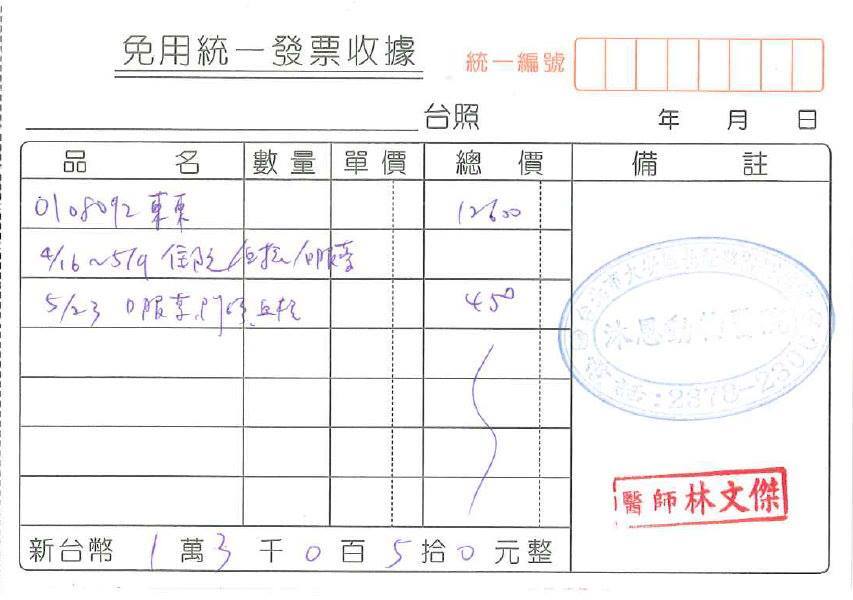 免用統一發票收據
統一編號
台照 年 月 日
品名 數量 單價 總價 備註
0108092 東東 12600
4/16~5/9 住院/血檢/口服藥
5/23 口服藥,門診,血檢 450
沐恩動物醫院
電話:2378-230
醫師林文傑
新台幣 1 萬 3 千 0 百 5 拾 0 元整